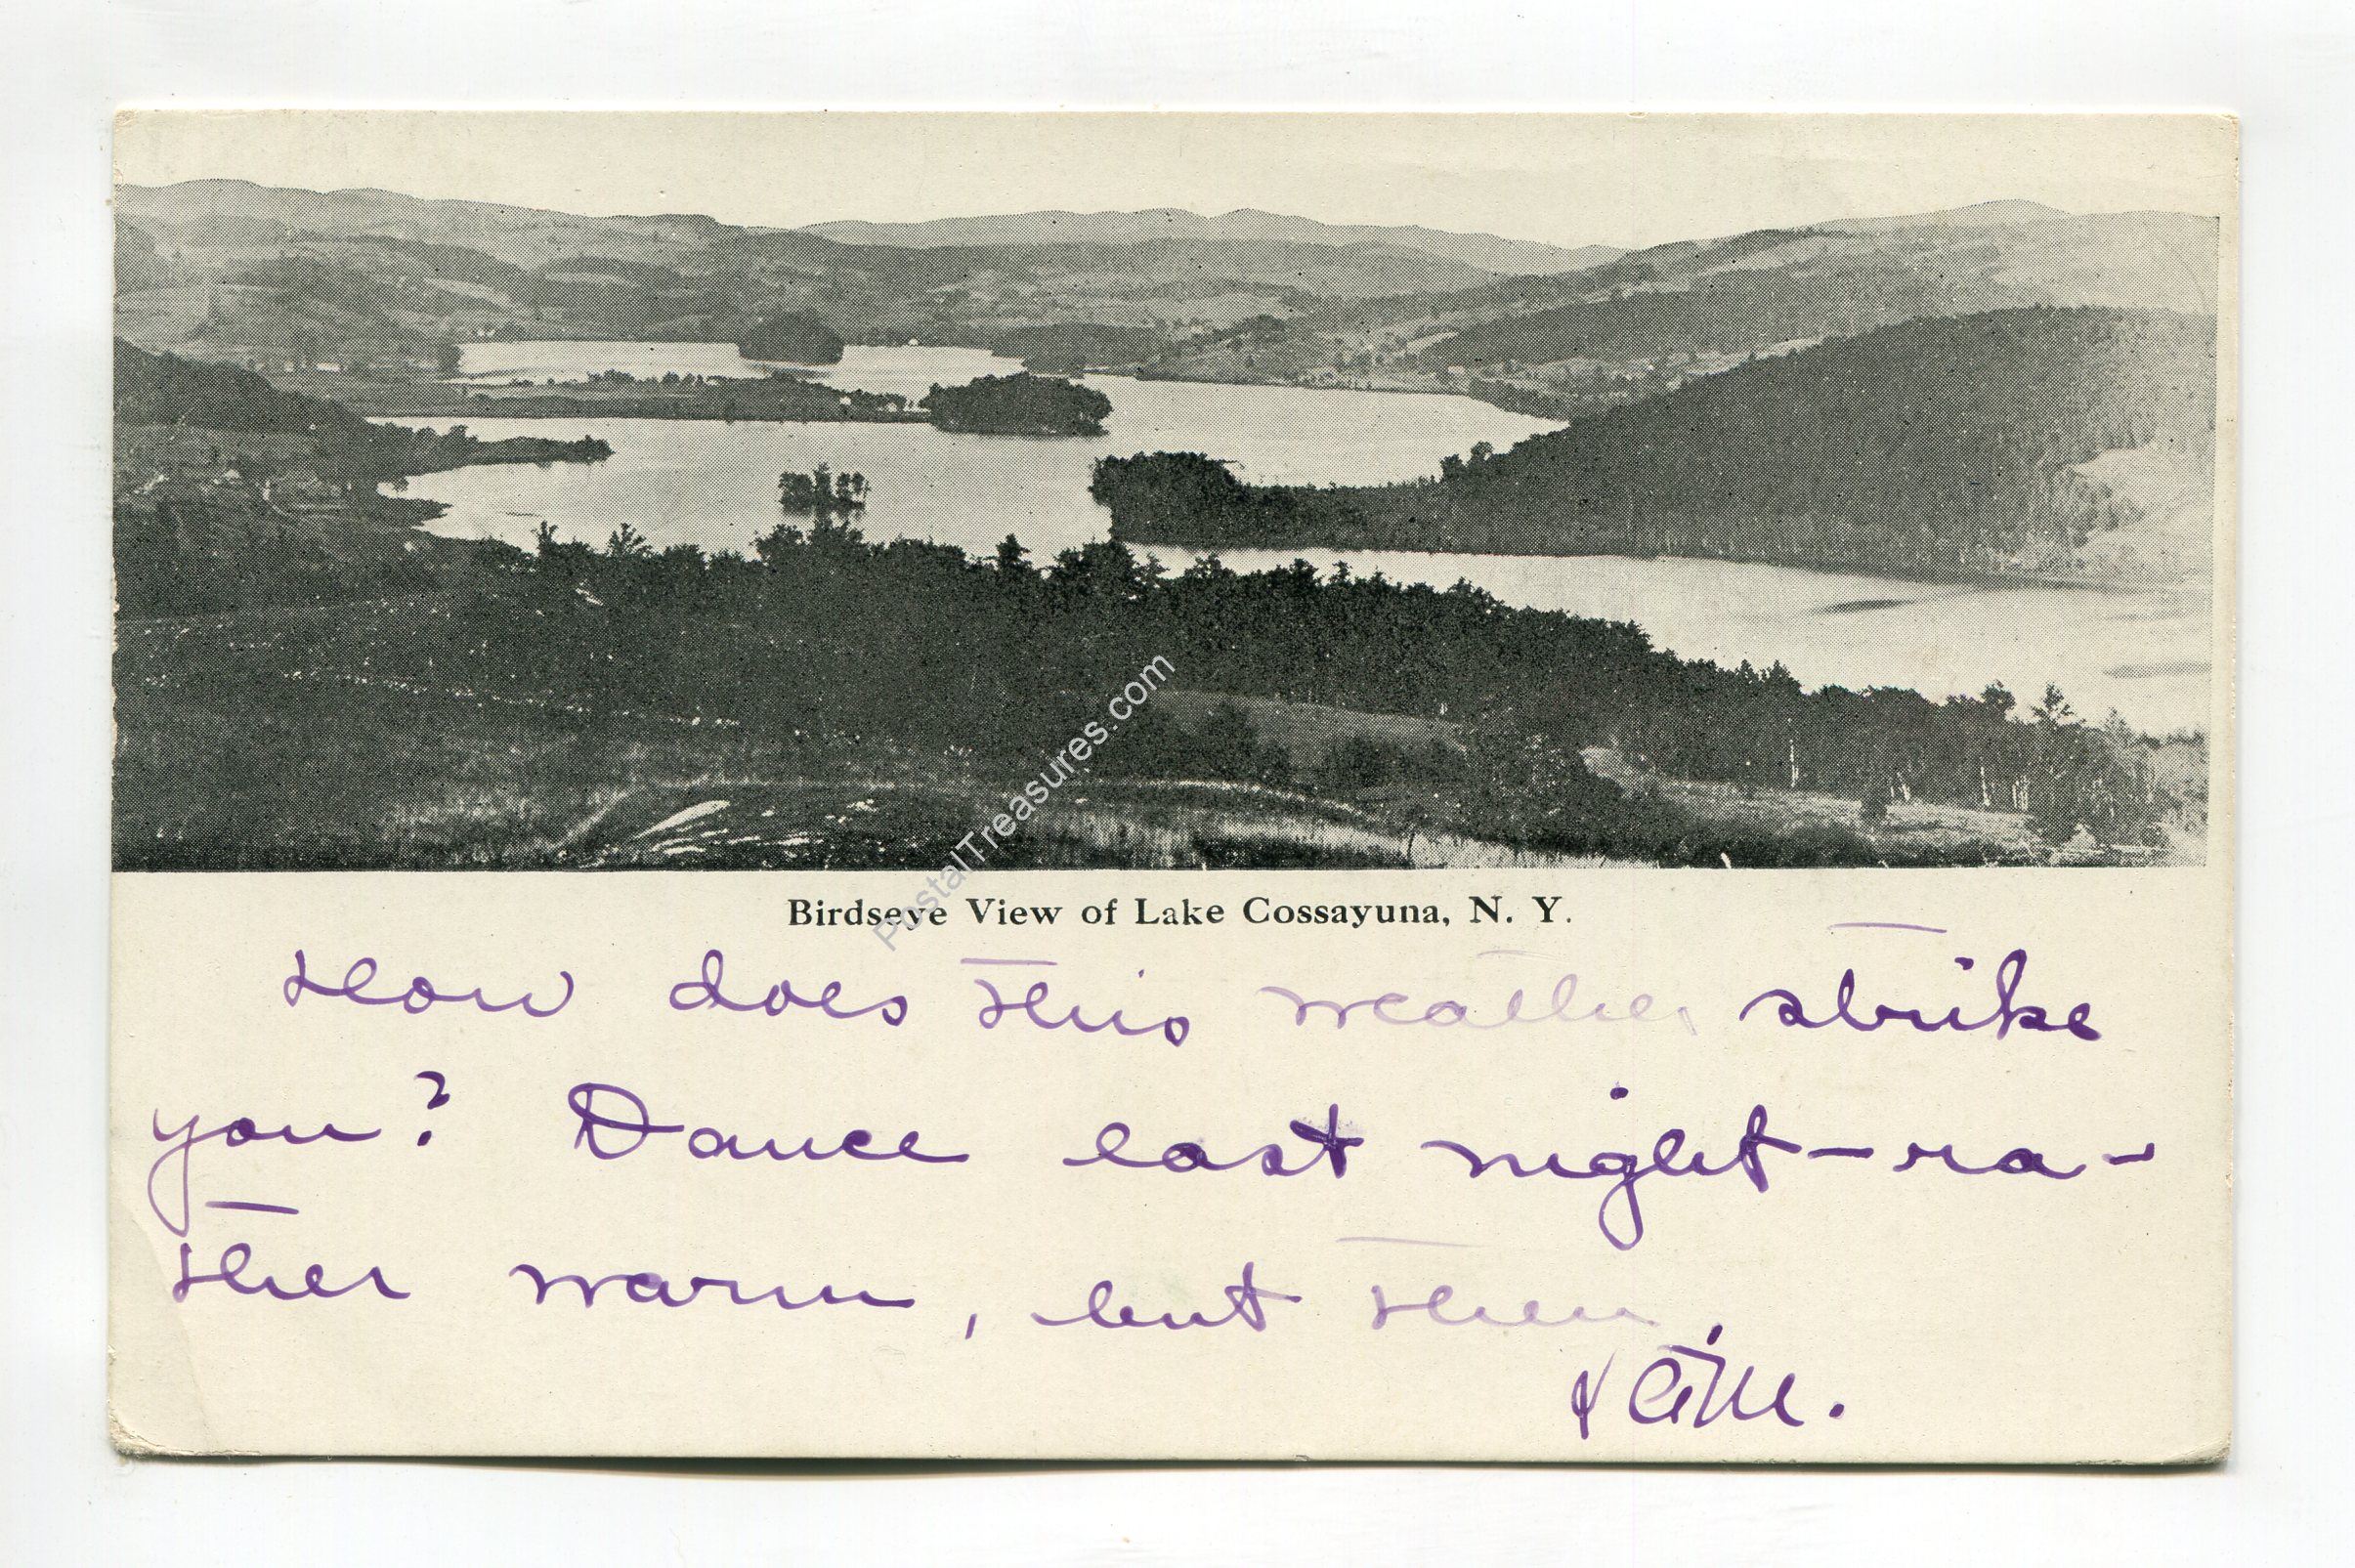 Birdseye View of Lake Cossayuna, N. Y.
PostalTreasures.com
How does this weather strike
you? Dance last night - ra-
ther warm, but then.